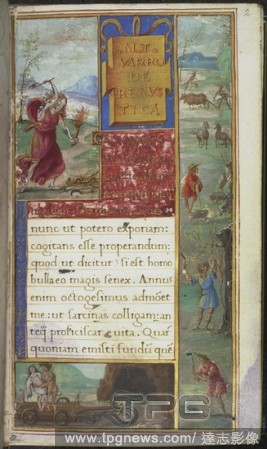 2
M.T.
VARRO
DE
RE RVS
TICA
nunc ut potero exponam:
cogitans esse properandum:
quod ut dicitur si est homo
bulla eo magis senex. Annus
enim octogesimus admōet
me: ut sarcinas colligam: an
teq̄ proficiscar e uita. Quar̄
quoniam emisti fundū quē
TPG
www.tpgnews.com/達志影像